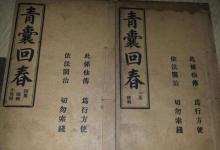 此係仙傳 為行方便
依法開治 切勿索錢
青囊回春
此係仙傳 為行方便
依法開治 切勿索錢
青囊回春